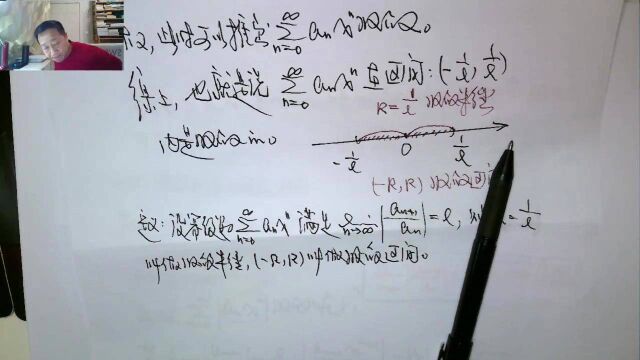 收敛,此时可以推出 \sum_{n=0}^{\infty} a_n x^n 收敛。
综上,也就是说 \sum_{n=0}^{\infty} a_n x^n 在区间: (-\frac{1}{l}, \frac{1}{l})
R = \frac{1}{l} 收敛半径
内是收敛的。
-\frac{1}{l} 0 \frac{1}{l}
(-R, R) 收敛区间
定义: 设幂级数 \sum_{n=0}^{\infty} a_n x^n 满足 \lim_{n→∞} |\frac{a_{n+1}}{a_n}| = l, 则 = \frac{1}{l}
叫做收敛半径, (-R, R) 叫做收敛区间。